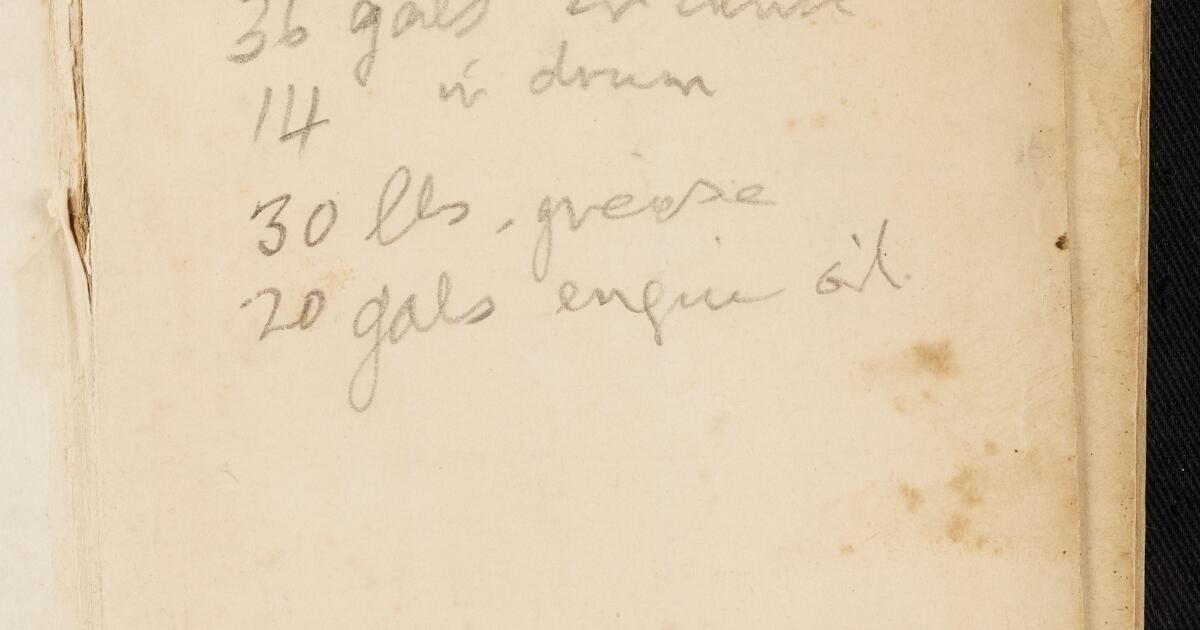 36 gals in
14 in drum
30 lbs. grease
20 gals engine oil.